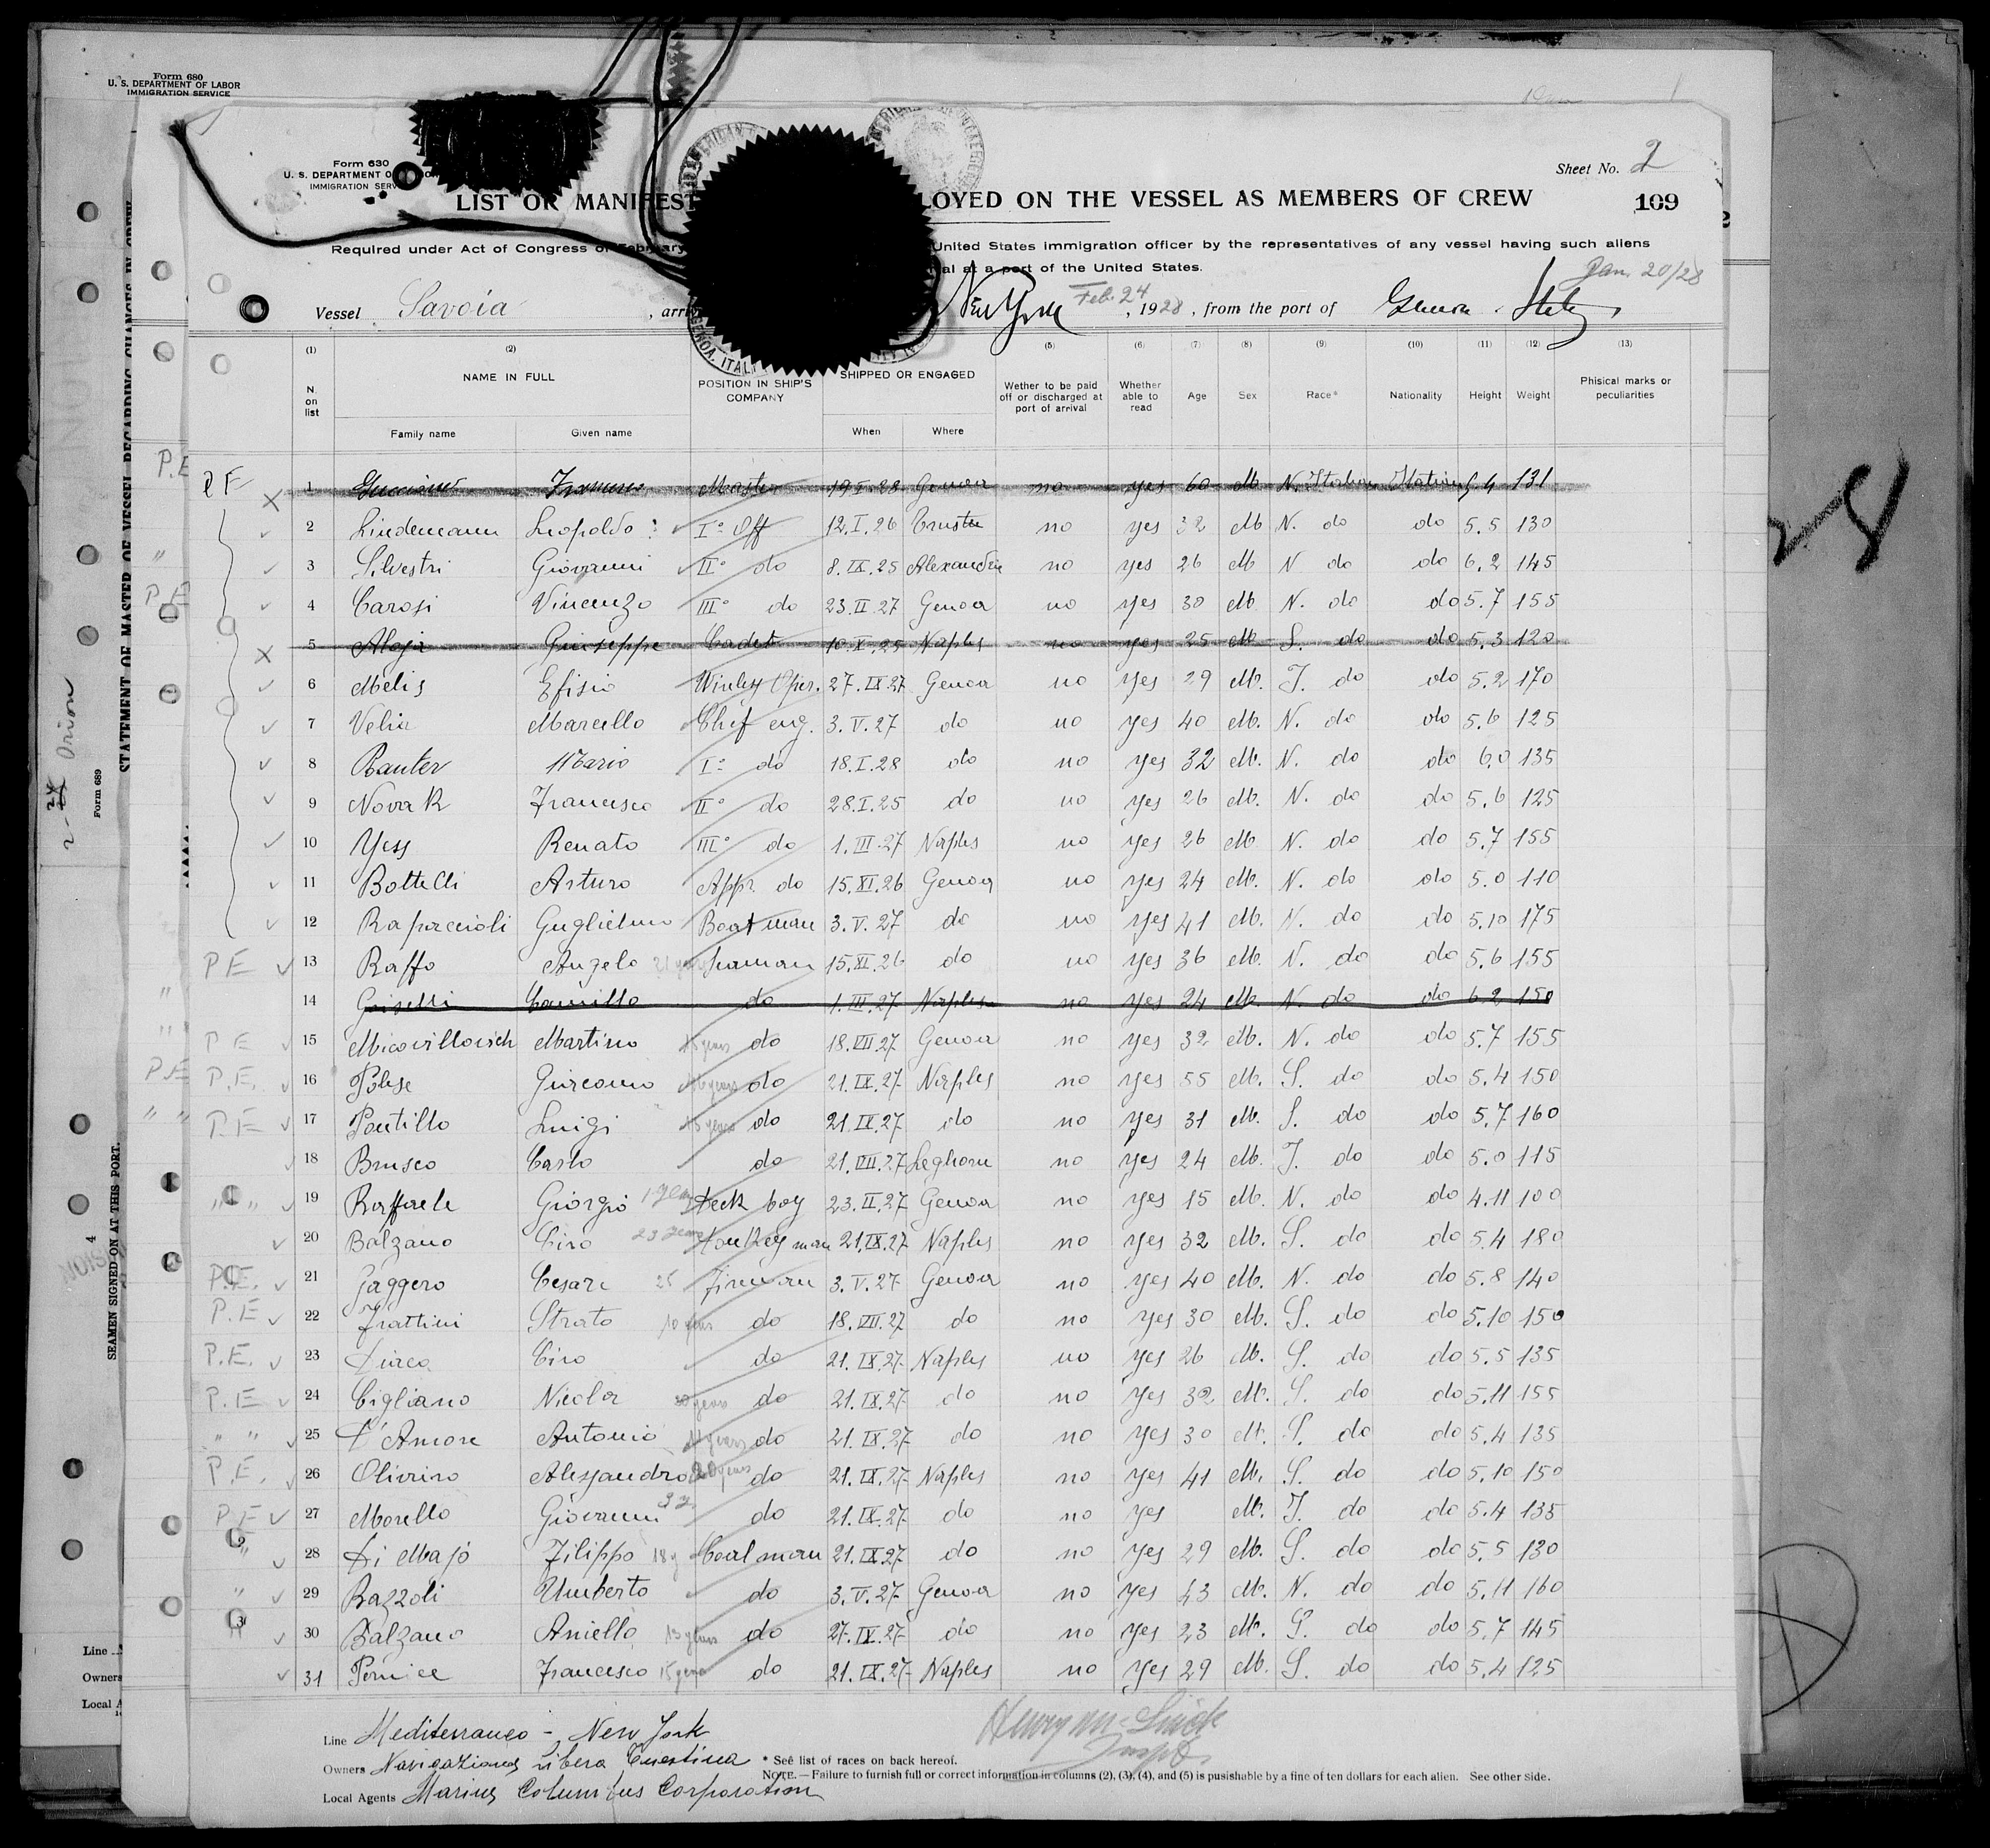 Form 680
U. S. DEPARTMENT OF LABOR
IMMIGRATION SERVICE
Form 630
U. S. DEPARTMENT O
IMMIGRATION SERV
Sheet No. 2
LIST OR MANIFEST LOYED ON THE VESSEL AS MEMBERS OF CREW
109
Required under Act of Congress of February United States immigration officer by the representatives of any vessel having such aliens
al at a port of the United States.
Jan. 20/28
Vessel Savoia , arri New York Feb. 24 , 1928 , from the port of Genoa Italy
GENOA, ITALY
(1) (2) (5) (6) (7) (8) (9) (10) (11) (12) (13)
N. on list NAME IN FULL POSITION IN SHIP'S COMPANY SHIPPED OR ENGAGED Wether to be paid off or discharged at port of arrival Whether able to read Age Sex Race* Nationality Height Weight Phisical marks or peculiarities
Family name Given name When Where
P.E 1 Master 19.I.28 Genoa no yes 60 M N. Italian Italian 5.4 131
2 Lindemann Leopoldo I° Off 12.I.26 no yes 32 M N. do do 5.5 130
3 Silvestri Giovanni II° do 8.IX.25 Alexandria no yes 26 M N do do 6.2 145
4 Carosi Vincenzo III° do 23.II.27 Genoa no yes 30 M N. do do 5.7 155
5 Giuseppe Cadet 10.X.25 Naples no yes 25 M S. do do 5.3 120
6 Melis Efisio Wireless Oper. 27.IX.27 Genoa no yes 29 M. I. do do 5.2 170
7 Velia Marcello Chief eng. 3.V.27 do no yes 40 M. N. do do 5.6 125
8 Ranter Mario I° do 18.I.28 do no yes 32 M. N. do do 6.0 135
9 Novak Francesco II° do 28.I.25 do no yes 26 M. N. do do 5.6 125
10 Yess Renato III° do 1.III.27 Naples no yes 26 M N. do do 5.7 155
11 Bottelli Arturo Appr. do 15.XI.26 Genoa no yes 24 M. N. do do 5.0 110
12 Rapaccioli Guglielmo Boatman 3.V.27 do no yes 41 M. N. do do 5.10 175
P E 13 Raffo Angelo seaman 15.XI.26 do no yes 36 M. N. do do 5.6 155
14 Camillo do 1.III.27 Naples no yes 24 M. N. do do 6.2 150
P E 15 Micovillovich Martino 15 years do 18.VII.27 Genoa no yes 32 M. N. do do 5.7 155
P.E. 16 Polese Giacomo do 21.IX.27 Naples no yes 55 M. S. do do 5.4 150
P.E 17 Pontillo Luigi 15 years do 21.IX.27 do no yes 31 M. S. do do 5.7 160
18 Brusco Carlo do 21.VII.27 Leghorn no yes 24 M. I. do do 5.0 115
" " 19 Raffaele Giorgio 1 year Deck boy 23.II.27 Genoa no yes 15 M. N. do do 4.11 100
20 Balzano Ciro 23 years Donkeyman 21.IX.27 Naples no yes 32 M. S. do do 5.4 180
P.E. 21 Gaggero Cesare 25 Fireman 3.V.27 Genoa no yes 40 M. N. do do 5.8 140
P.E 22 Frattini Strato 10 years do 18.VII.27 do no yes 30 M. S. do do 5.10 150
P.E. 23 Ciro do 21.IX.27 Naples no yes 26 M. S. do do 5.5 135
P.E 24 Cigliano Nicola years do 21.IX.27 do no yes 32 M. S. do do 5.11 155
" " 25 D'Amore Antonio years do 21.IX.27 do no yes 30 M. S. do do 5.4 135
P.E. 26 Alessandro 20 years do 21.IX.27 Naples no yes 41 M. S. do do 5.10 150
P E 27 Morello Giovanni do 21.IX.27 do no yes M. I. do do 5.4 135
" 28 Di Majo Filippo 18 y Coalman 21.IX.27 do no yes 29 M. S. do do 5.5 130
" 29 Razzoli Umberto do 3.V.27 Genoa no yes 43 M. N. do do 5.11 160
" 30 Balzano Aniello 13 years do 27.IX.27 do no yes 23 M. S. do do 5.7 145
31 Pernice Francesco 15 years do 21.IX.27 Naples no yes 29 M. S. do do 5.4 125
Line Mediterraneo - New York
Owners Navigazione Libera Triestina
Local Agents Marine Columbus Corporation
* See list of races on back hereof.
NOTE. — Failure to furnish full or correct information in columns (2), (3), (4), and (5) is pusishable by a fine of ten dollars for each alien. See other side.
STATEMENT OF MASTER OF VESSEL REGARDING CHANGES IN CREW
SEAMEN SIGNED ON AT THIS PORT.
Form 689
Orion
Line
Owners
Local A